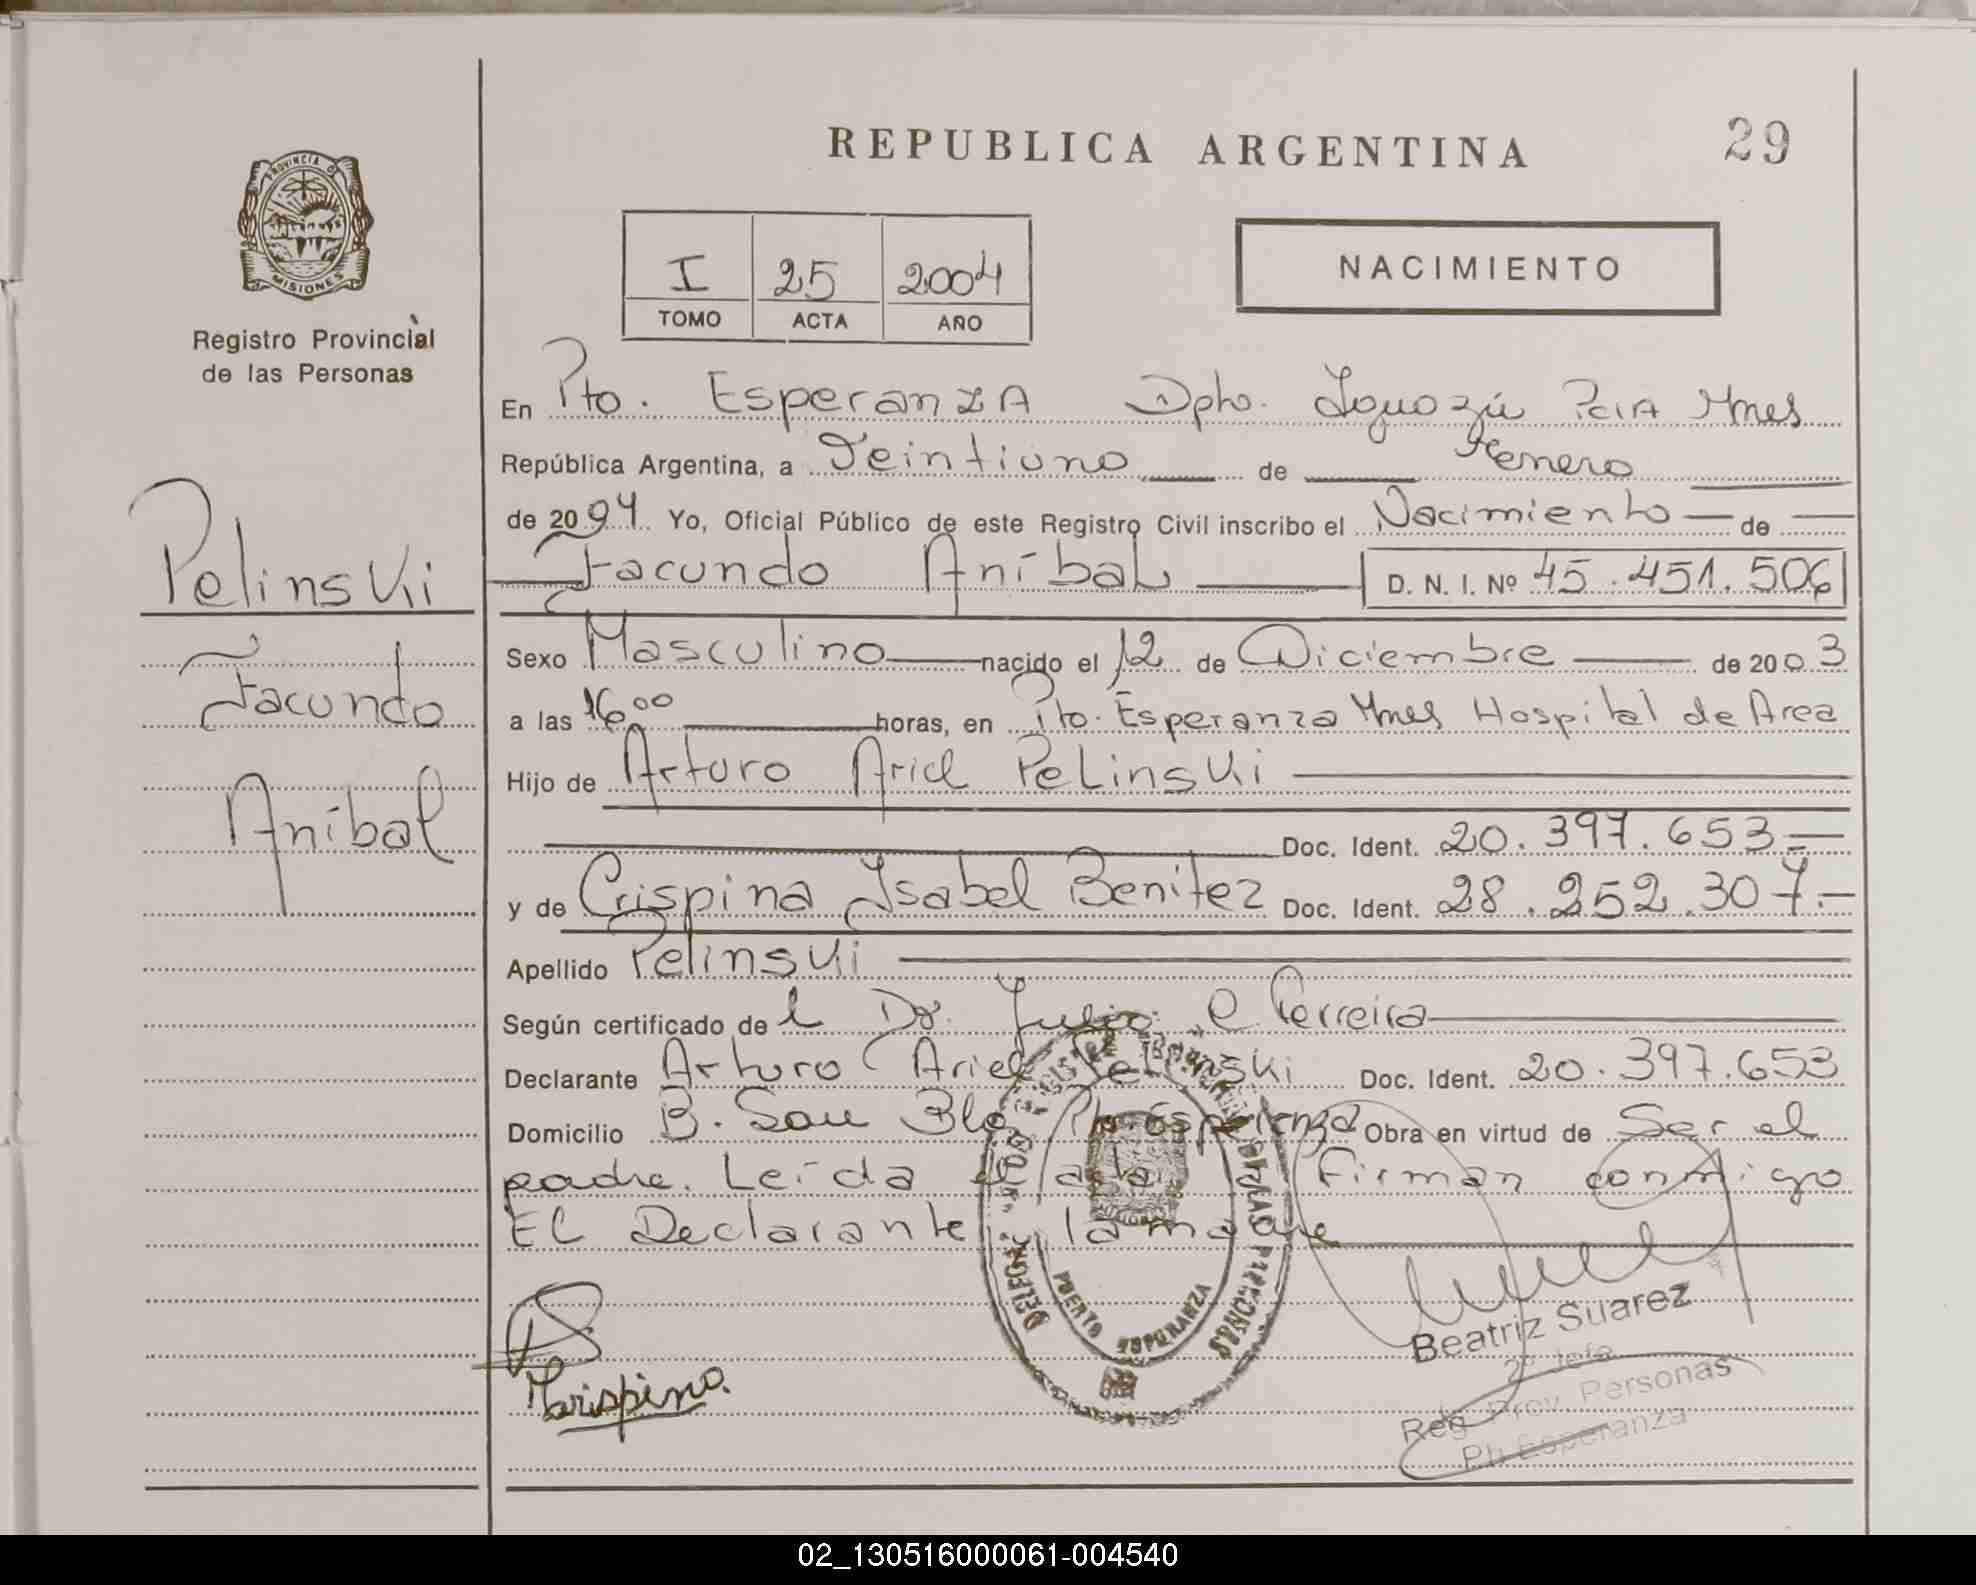 REPUBLICA ARGENTINA
29
PROVINCIA DE
MISIONES
Registro Provincial
de las Personas
I 25 2004
TOMO ACTA AÑO
NACIMIENTO
En Pto. Esperanza Dpto. Iguazú Pcia Mnes
República Argentina, a Veintiuno de Henero
de 2004 Yo, Oficial Público de este Registro Civil inscribo el Nacimiento de
Facundo Aníbal D. N. I. Nº 45.451.506
Pelinski
Facundo
Aníbal
Sexo Masculino nacido el 12 de Diciembre de 2003
a las 16:00 horas, en Pto. Esperanza Mnes Hospital de Area
Hijo de Arturo Ariel Pelinski
Doc. Ident. 20.397.653.-
y de Crispina Isabel Benitez Doc. Ident. 28.252.307.-
Apellido Pelinski
Según certificado de l Dr. Julio C Ferreira
Declarante Arturo Ariel Pelinski Doc. Ident. 20.397.653
Domicilio B. San Blo Pto Esperanza Obra en virtud de Ser el
padre. Leída el acta firman conmigo
El Declarante y la madre
PUERTO ESPERANZA
Crispina.
Beatriz Suarez
2º Jefe
Reg. Prov. Personas
Pto Esperanza
02_130516000061-004540